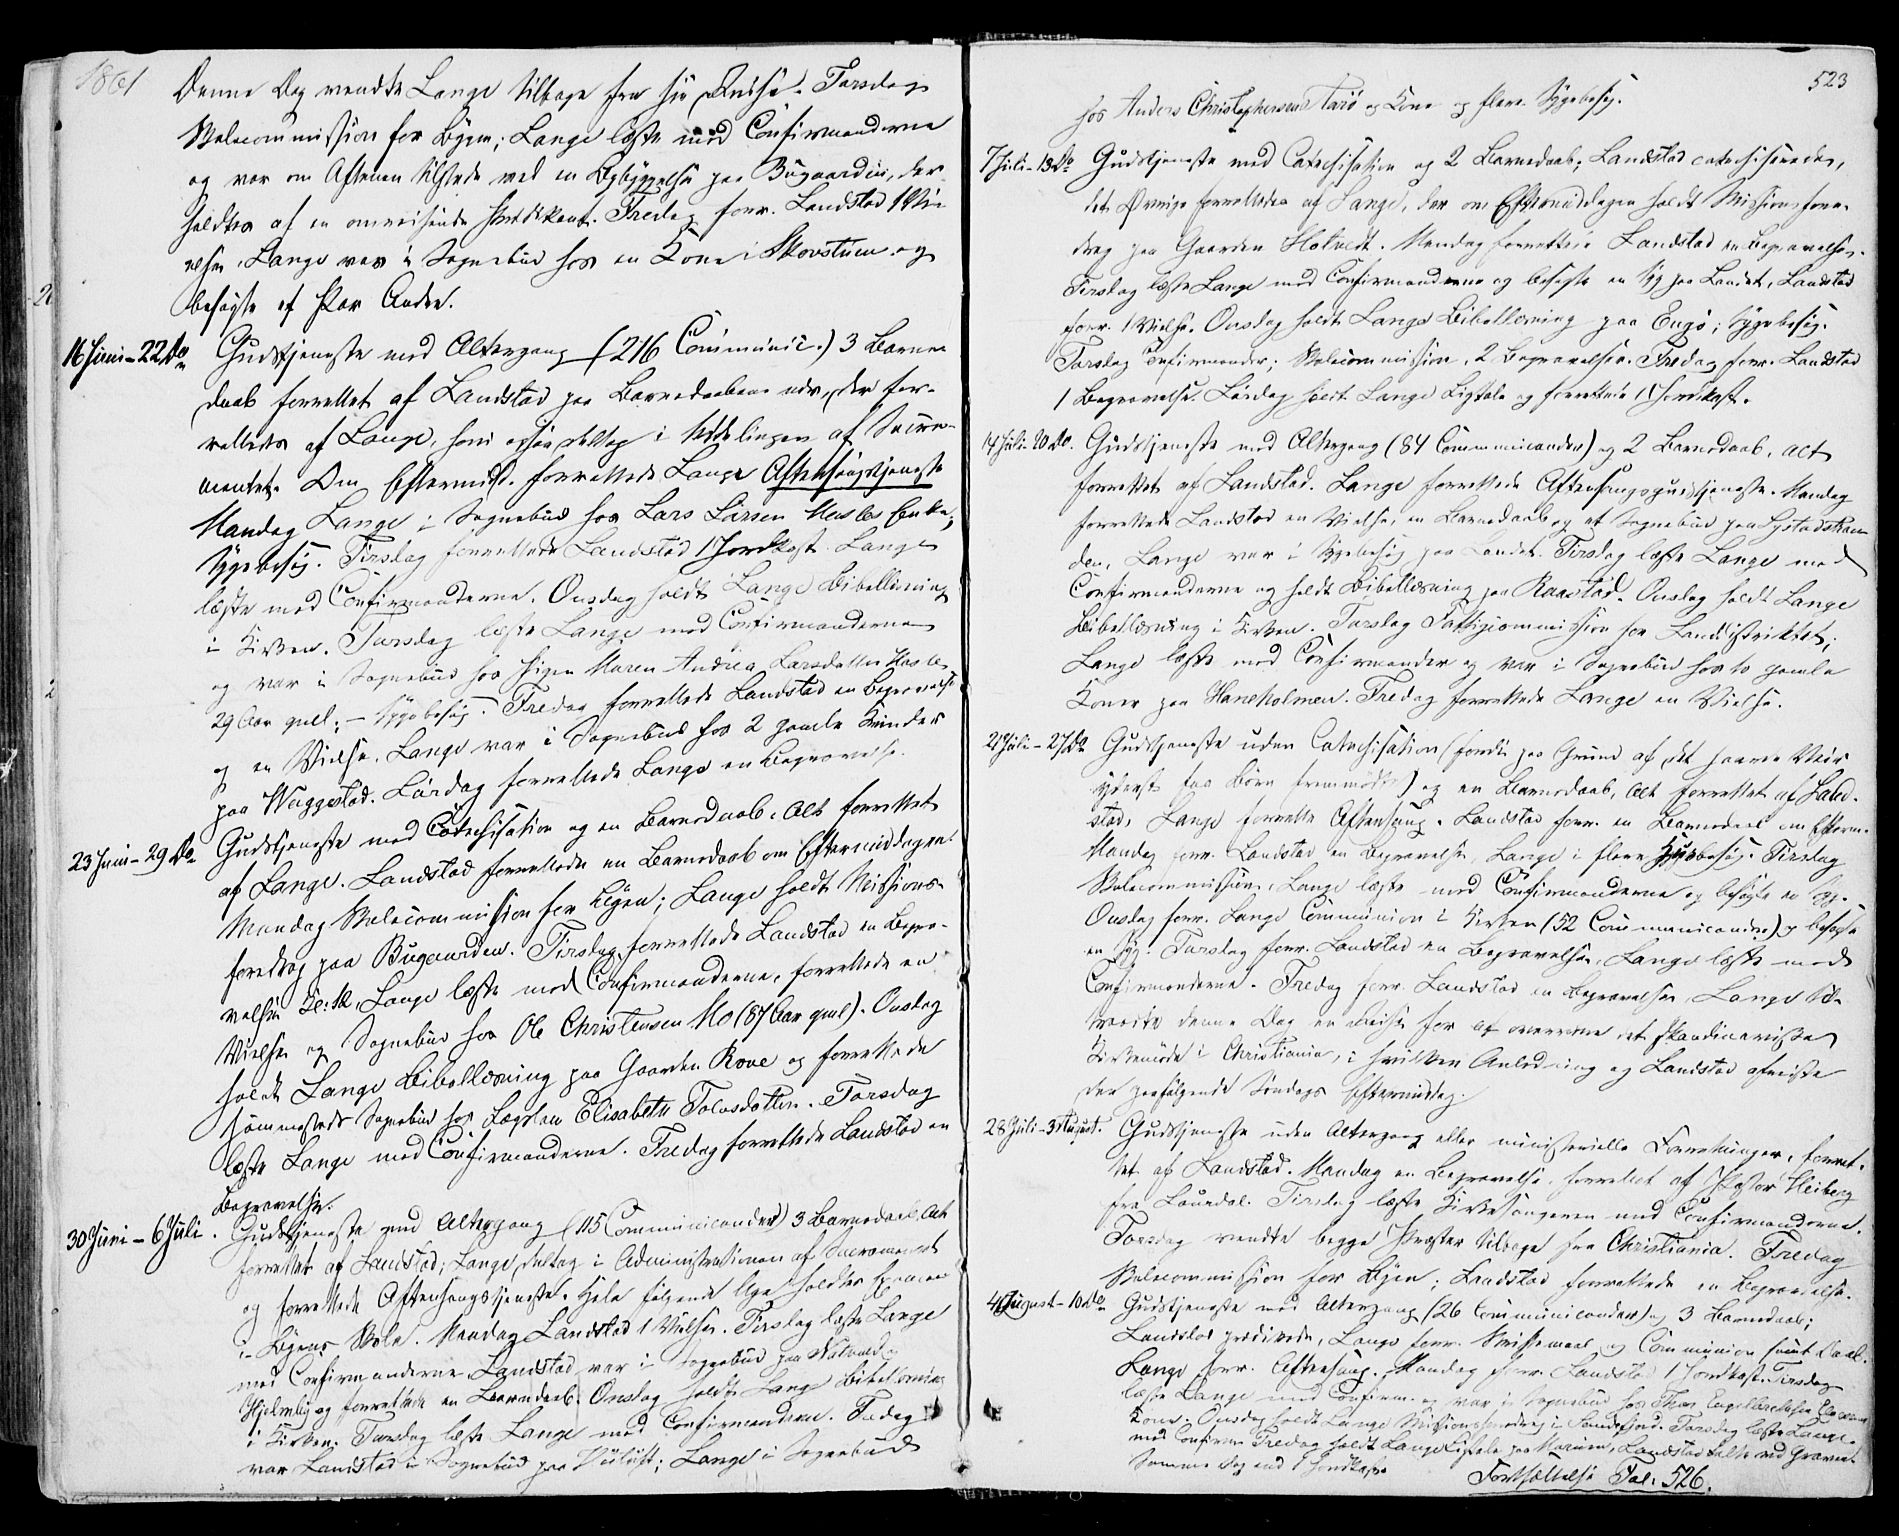 1861
Denne Dag vendte Lange tilbage fra sin Reise. Torsdag
Skolecommission for Byen; Lange læste med Confirmanderne
og var om Aftenen tilstede ved en Opbyggelse paa Bugaarden, der
holdtes af en omreisende Prædikant. Fredag forr. Landstad 1 Vi-
else. Lange var i Sognebud hos en Kone i Skovstuen og
besøgte et Par Andre.
16 Juni - 22 Do
Gudstjeneste med Altergang (216 Communic.) 3 Barne-
daab forrettet af Landstad paa Barnedaabene nær, der for-
rettedes af Lange, som ogsaa deltog i Uddelingen af Sacra-
mentet. Om Eftermidd. forrettede Lange Aftensangstjeneste
Mandag Lange i Sognebud hos Lars Larsen Hasles Enke;
Sygebesøg. Tirsdag forrettede Landstad 1 Jordkast. Lange
læste med Confirmanderne. Onsdag holdt Lange Bibellæsning
i Kirken. Torsdag læste Lange med Confirmanderne
og var i Sognebud hos Pigen Maren Andrea Larsdatter Hasle,
29 Aar gml; - Sygebesøg. Fredag forrettede Landstad en Begravelse
og en Vielse. Lange var i Sognebud hos 2 gamle Kvinder
paa Waggestad. Lørdag forrettede Lange en Begravelse.
23 Juni - 29 Do
Gudstjeneste med Catechisation og en Barnedaab. Alt forrettet
af Lange. Landstad forrettede en Barnedaab om Eftermiddagen.
Mandag Skolecommission for Byen; Lange holdt Missions-
foredrag paa Bugaarden. Tirsdag forrettede Landstad en Begra-
velse Kl: 12, Lange læste med Confirmanderne, forrettede en
Vielse og Sognebud hos Ole Christensen Mo (87 Aar gml). Onsdag
holdt Lange Bibellæsning paa Gaarden Rove og forrettede
sammesteds Sognebud hos Lægslem Elisabeth Tolvsdatter. Torsdag
læste Lange med Confirmanderne. Fredag forrettede Landstad en
Begravelse.
30 Juni - 6 Juli.
Gudstjeneste med Altergang (115 Communicander) 3 Barnedaab Alt
forrettet af Landstad; Lange deltog i Administrationen af Sacramentet
og forrettede Aftensangstjeneste. Hele følgende Uge holdtes Examen
i Byens Skole. Mandag Landstad 1 Vielse. Tirsdag læste Lange
med Confirmanderne Landstad var i Sognebud paa
Hjelmby og forrettede en Barnedaab. Onsdag holdt Lange Bibellæsning
i Kirken; Torsdag læste Lange med Confirmanderne. Fredag
var Landstad i Sognebud paa; Lange i Sognebud
523
hos Anders Christophersen Farø og Kone og flere Sygebesøg.
7 Juli - 13 Do
Gudstjeneste med Catechisation og 2 Barnedaab; Landstad catechiserede,
det Øvrige forrettedes af Lange, der om Eftermiddagen holdt Missionsfore-
drag paa Gaarden Holtedt. Mandag forrettede Landstad en Begravelse.
Tirsdag læste Lange med Confirmanderne og besøgte en Syg paa Landet, Landstad
forr. 1 Vielse. Onsdag holdt Lange Bibellæsning paa Engø; Sygebesøg.
Torsdag Confirmander; Skolecommission, 2 Begravelser. Fredag forr. Landstad
1 Begravelse. Lørdag holdt Lange Ligtale og forrettede 1 Jordkast.
14 Juli - 20 Do.
Gudstjeneste med Altergang (84 Communicander) og 2 Barnedaab, alt
forrettet af Landstad. Lange forrettede Aftensangsgudstjeneste. Mandag
forrettede Landstad en Vielse, en Barnedaab og et Sognebud paa Gystadstran-
den, Lange var i Sygebesøg paa Landet. Tirsdag læste Lange med
Confirmanderne og holdt Bibellæsning paa Raastad. Onsdag holdt Lange
Bibellæsning i Kirken. Torsdag Fattigcommission for Landdistriktet;
Lange læste med Confirmander og var i Sognebud hos to gamle
Koner paa Haneholmen. Fredag forrettede Lange en Vielse.
21 Juli - 27 Do
Gudstjeneste uden Catechisation (fordi paa Grund af det haarde Veir
yderst faa Børn fremmødte) og en Barnedaab, alt forrettet af Land-
stad, Lange forrette Aftensang. Landstad forr. en Barnedaab om Efterm.
Mandag forr. Landstad en Begravelse, Lange i flere Sygebesøg. Tirsdag
Skolecommission, Lange læste med Confirmanderne og besøgte en Syg.
Onsdag forr. Lange Communion i Kirken (52 Communicander) og besøgte
en Syg. Torsdag forr. Landstad en Begravelse, Lange læste med
Confirmanderne. Fredag forr. Landstad en Begravelse, Lange til-
traadte denne Dag en Reise for at overvære det skandinaviske
Kirkemøde i Christiania, i hvilken Anledning og Landstad afreiste
den paafølgende Søndags Eftermiddag.
28 Juli - 3 August.
Gudstjeneste uden Altergang eller ministerielle Forretninger, forret-
tet af Landstad. Mandag en Begravelse, forrettet af Pastor Heiberg
fra Laurdal. Tirsdag læste Kirkesangeren med Confirmanderne.
Torsdag vendte begge Præster tilbage fra Christiania. Fredag
Skolecommission for Byen; Landstad forrettede en Begravelse.
4 August - 10 Do
Gudstjeneste med Altergang (26 Communicander) og 3 Barnedaab;
Landstad prædikede, Lange forr. Skriftemaal og Communion samt Daab.
Lange forr. Aftensang. Mandag forr. Landstad 1 Jordkast. Tirsdag
læste Lange med Confirm. og var i Sognebud hos Thor
Kone. Onsdag holdt Lange Missionsforedrag i Sandefjord. Torsdag læste Lange
med Confirm. Fredag holdt Lange Ligtale paa, Landstad talte ved Graven
Samme Dag end 1 Jordkastelse
Fortsættelse Fol: 526.